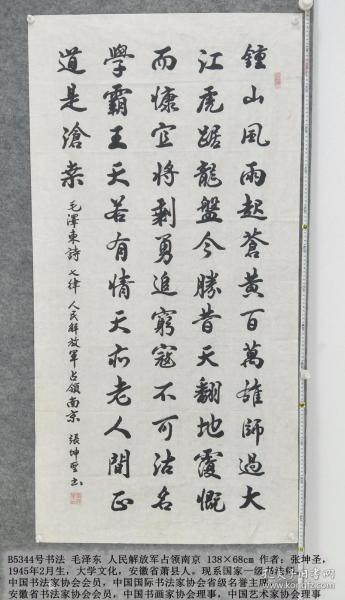 鍾山風雨起蒼黃百萬雄師過大
江虎踞龍盤今勝昔天翻地覆慨
而慷宜將剩勇追窮寇不可沽名
學霸王天若有情天亦老人間正
道是滄桒 毛澤東詩 七律 人民解放軍占領南京 張坤聖书
B5344号书法 毛泽东 人民解放军占领南京 138×68cm 作者：张坤圣，
1945年2月生，大学文化，安徽省萧县人。现系国家一级书法师，
中国书法家协会会员，中国国际书法家协会省级名誉主席，
安徽省书法家协会会员，中国书画家协会理事，中国艺术家协会理事